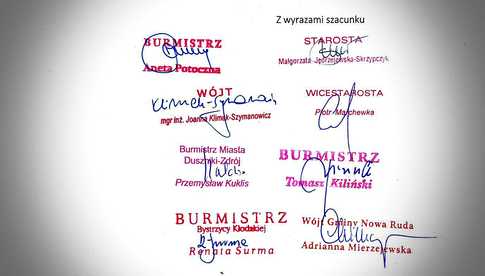 Z wyrazami szacunku
BURMISTRZ
Aneta Potoczna
STAROSTA
Małgorzata Jędrzejewska-Skrzypczyk
WÓJT
Klimek-Szymanowicz
mgr inż. Joanna Klimek-Szymanowicz
WICESTAROSTA
Piotr Marchewka
Burmistrz Miasta
Duszniki-Zdrój
Przemysław Kuklis
BURMISTRZ
Tomasz Kiliński
BURMISTRZ
Bystrzycy Kłodzkiej
Renata Surma
Wójt Gminy Nowa Ruda
Adrianna Mierzejewska